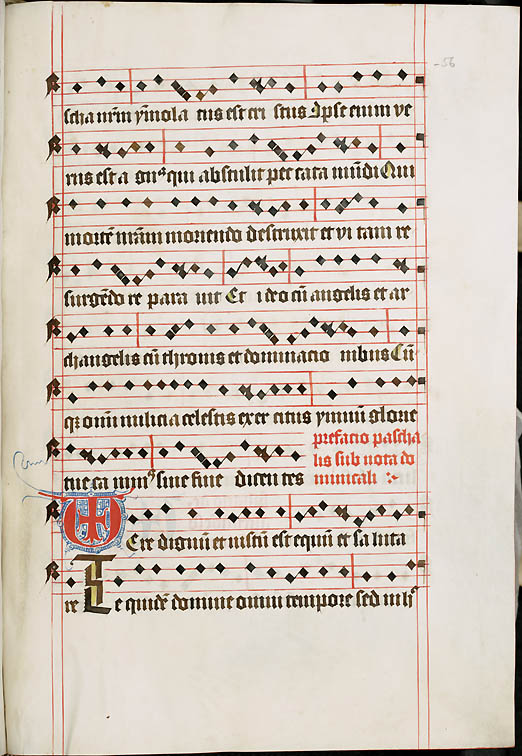 56
scha nr̄m ym̄ola tus est cri stus Ipse enim ve
rus est a gnꝰ qui abstulit pec cata mūdi Qui
mortē nr̄am moriendo destruxit et vi tam re
surgēdo re para uit Et ideo cū angelis et ar
changelis cū thronis et dominacio nibus Cū
qꝫ omī milicia celestis exer citus ymnū glorie
prefacio pascha
tue ca nimꝰ sine fine dicen tes
lis sub nota do
minicali
Ere dignū et iustū est equū et sa luta
re Te quidē domine omni tempore sed in h